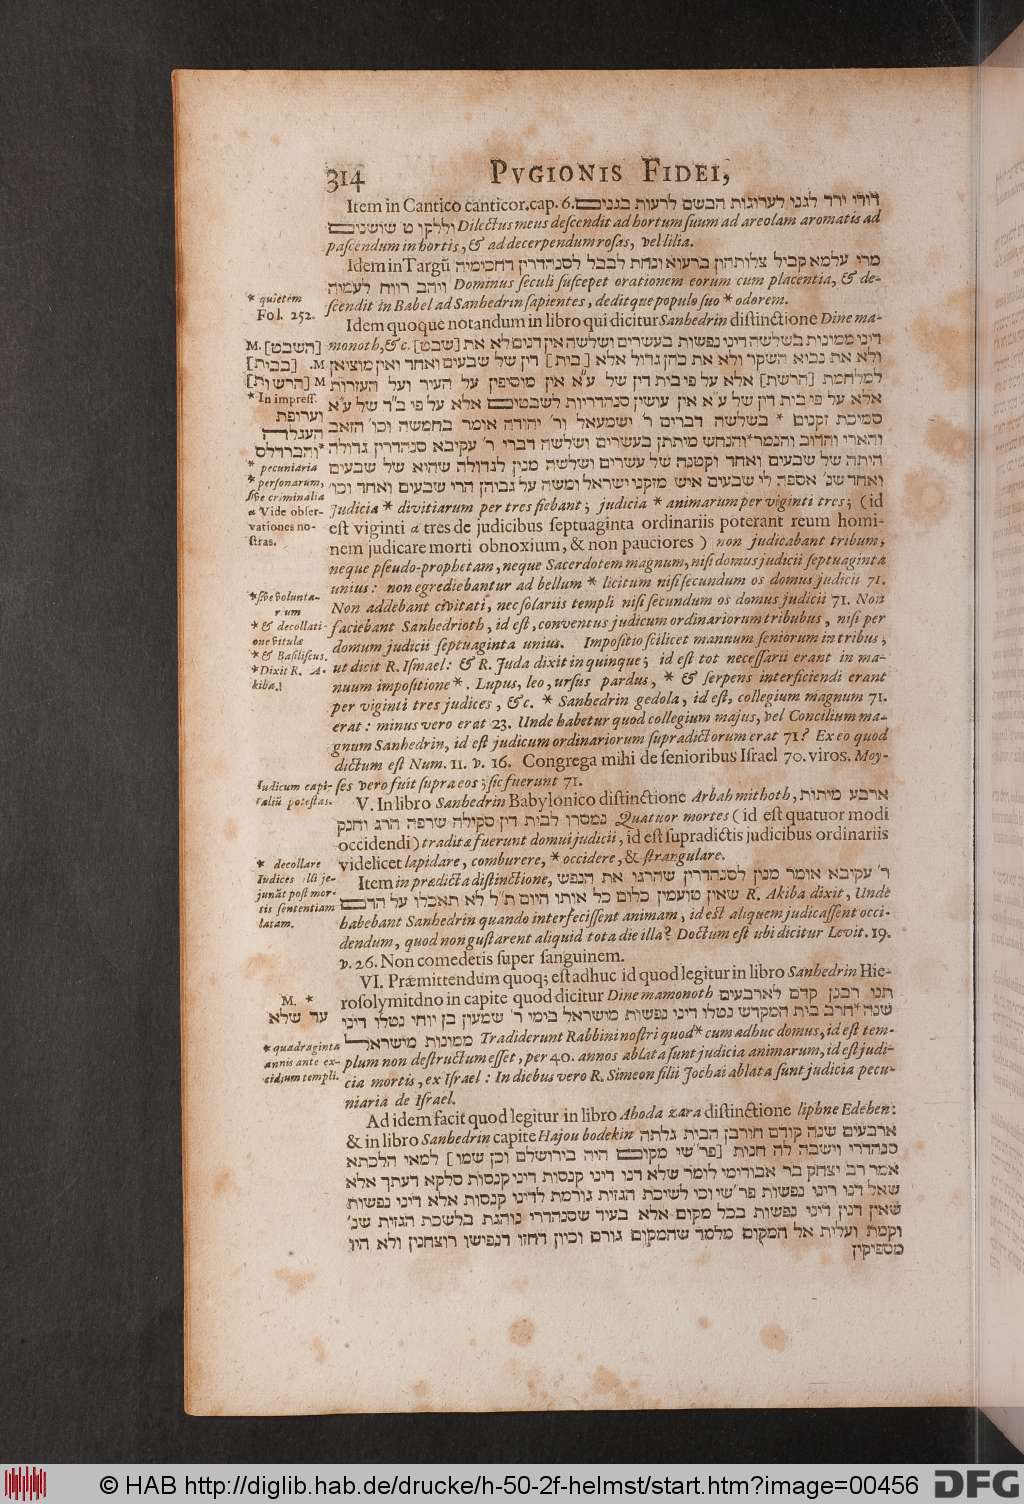 314 PVGIONIS FIDEI,
Item in Cantico canticor. cap. 6. דודי ירד לגנו לערוגות הבשם לרעות בגנים
וללקוט שושנים Dilectus meus descendit ad hortum suum ad areolam aromatis ad
pascendum in hortis, & ad decerpendum rosas, vel lilia.
Idem in Targū מרי עלמא קביל צלותהון ברעוא ונחת לבבל לסנהדרין דחכימיה
ויהב רווח לעמיה Dominus seculi suscepit orationem eorum cum placentia, & de-
scendit in Babel ad Sanhedrin sapientes, deditque populo suo * odorem.
* quietem
Fol. 252.
Idem quoque notandum in libro qui dicitur Sanhedrin distinctione Dine ma-
monoth, &c. דיני ממונות בשלשה דיני נפשות בעשרים ושלשה אין דנים לא את [שבט]
M. [השבט]
ולא את נביא השקר ולא את כהן גדול אלא [בית] דין של שבעים ואחד ואין מוציאין
M. [בבית]
למלחמת [הרשת] אלא על פי בית דין של ע״א אין מוסיפין על העיר ועל העזרות
M [הרשות]
אלא על פי בית דין של ע״א אין עושין סנהדריות לשבטים אלא על פי ב״ד של ע״א
* In impress.
סמיכת זקנים * בשלשה דברים ר׳ ישמעאל ור׳ יהודה אומר בחמשה וכו׳ הזאב
וערופת
העגלה
והארי והדוב והנמר* והנחש מיתתן בעשרים ושלשה דברי ר׳ עקיבא סנהדרין גדולה
* והברדלס
היתה של שבעים ואחד וקטנה של עשרים ושלשה מנין לגדולה שהיא של שבעים
ואחד שנ׳ אספה לי שבעים איש מזקני ישראל ומשה על גביהן הרי שבעים ואחד וכו׳
* pecuniaria
* personarum,
sive criminalia
a Vide obser-
vationes no-
stras.
Judicia * divitiarum per tres fiebant; judicia * animarum per viginti tres; (id
est viginti a tres de judicibus septuaginta ordinariis poterant reum homi-
nem judicare morti obnoxium, & non pauciores) non judicabant tribum,
neque pseudo-prophetam, neque Sacerdotem magnum, nisi domus judicii septuaginta
unius: non egrediebantur ad bellum * licitum nisi secundum os domus judicii 71.
Non addebant civitati, nec solariis templi nisi secundum os domus judicii 71. Non
faciebant Sanhedrioth, id est, conventus judicum ordinariorum tribubus, nisi per
domum judicii septuaginta unius. Impositio scilicet manuum seniorum in tribus,
ut dicit R. Ismael: & R. Juda dixit in quinque; id est tot necessarii erant in ma-
nuum impositione *. Lupus, leo, ursus pardus, * & serpens interficiendi erant
per viginti tres judices, &c. * Sanhedrin gedola, id est, collegium magnum 71.
erat: minus vero erat 23. Unde habetur quod collegium majus, vel Concilium ma-
gnum Sanhedrin, id est judicum ordinariorum supradictorum erat 71? Ex eo quod
dictum est Num. 11. v. 16. Congrega mihi de senioribus Israel 70. viros. Moy-
ses vero fuit supra eos; sic fuerunt 71.
* sive volunta-
rium
* & decollati-
one vitulæ
* & Basiliscus.
* Dixit R. A-
kiba.]
Iudicum capi-
taliū potestas.
V. In libro Sanhedrin Babylonico distinctione Arbah mithoth, ארבע מיתות
נמסרו לבית דין סקילה שרפה הרג וחנק Quatuor mortes (id est quatuor modi
occidendi) traditæ fuerunt domui judicii, id est supradictis judicibus ordinariis
videlicet lapidare, comburere, * occidere, & strangulare.
* decollare
Iudices illi je-
junāt post mor-
tis sententiam
latam.
Item in prædicta distinctione, ר׳ עקיבא אומר מנין לסנהדרין שהרגו את הנפש
שאין טועמין כלום כל אותו היום ת״ל לא תאכלו על הדם R. Akiba dixit, Unde
habebant Sanhedrin quando interfecissent animam, id est aliquem judicassent occi-
dendum, quod non gustarent aliquid tota die illa? Doctum est ubi dicitur Levit. 19.
v. 26. Non comedetis super sanguinem.
VI. Præmittendum quoq; est adhuc id quod legitur in libro Sanhedrin Hie-
rosolymitano in capite quod dicitur Dine mamonoth תנו רבנן קדם לארבעים
שנה * חרב בית המקדש נטלו דיני נפשות מישראל בימי ר׳ שמעון בן יוחי נטלו דיני
M. *
עד שלא
ממונות מישראל Tradiderunt Rabbini nostri quod * cum adhuc domus, id est tem-
plum non destructum esset, per 40. annos ablata sunt judicia animarum, id est judi-
cia mortis, ex Israel: In diebus vero R. Simeon filii Jochai ablata sunt judicia pecu-
niaria de Israel.
* quadraginta
annis ante ex-
cidium templi.
Ad idem facit quod legitur in libro Ahoda zara distinctione liphne Edehen:
& in libro Sanhedrin capite Hajou bodekin ארבעים שנה קודם חורבן הבית גלתה
סנהדרי וישבה לה חנות [פר׳שי מקום היה בירושלם וכן שמו] למאי הלכתא
אמר רב יצחק בר אבודימי לומר שלא דנו דיני קנסות דיני קנסות סלקא דעתך אלא
שאל דנו דיני נפשות פר׳שי וכי לשיכת הגזית גורמת לדיני קנסות אלא דיני נפשות
שאין דנין דיני נפשות בכל מקום אלא בעיד שסנהדרי נוהגת בלשכת הגזית שנ׳
וקמת ועלית אל המקום מלמד שהמקום גורם וכיון דחזו דנפישו רוצחנין ולא היו
מספיקין
© HAB http://diglib.hab.de/drucke/h-50-2f-helmst/start.htm?image=00456 DFG